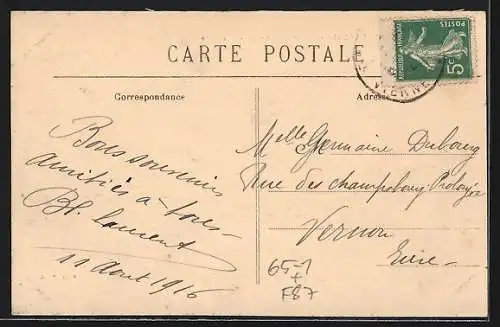 CARTE POSTALE
Correspondance
Adresse
POSTES
5c
VIENNE
Bons souvenirs
amitiés à tous
Bl. Laurent
11 Aout 1916
Melle Germaine Dubourg
Rue des champsbourg Prolongée
Vernon
Eure
65-1
+
F87